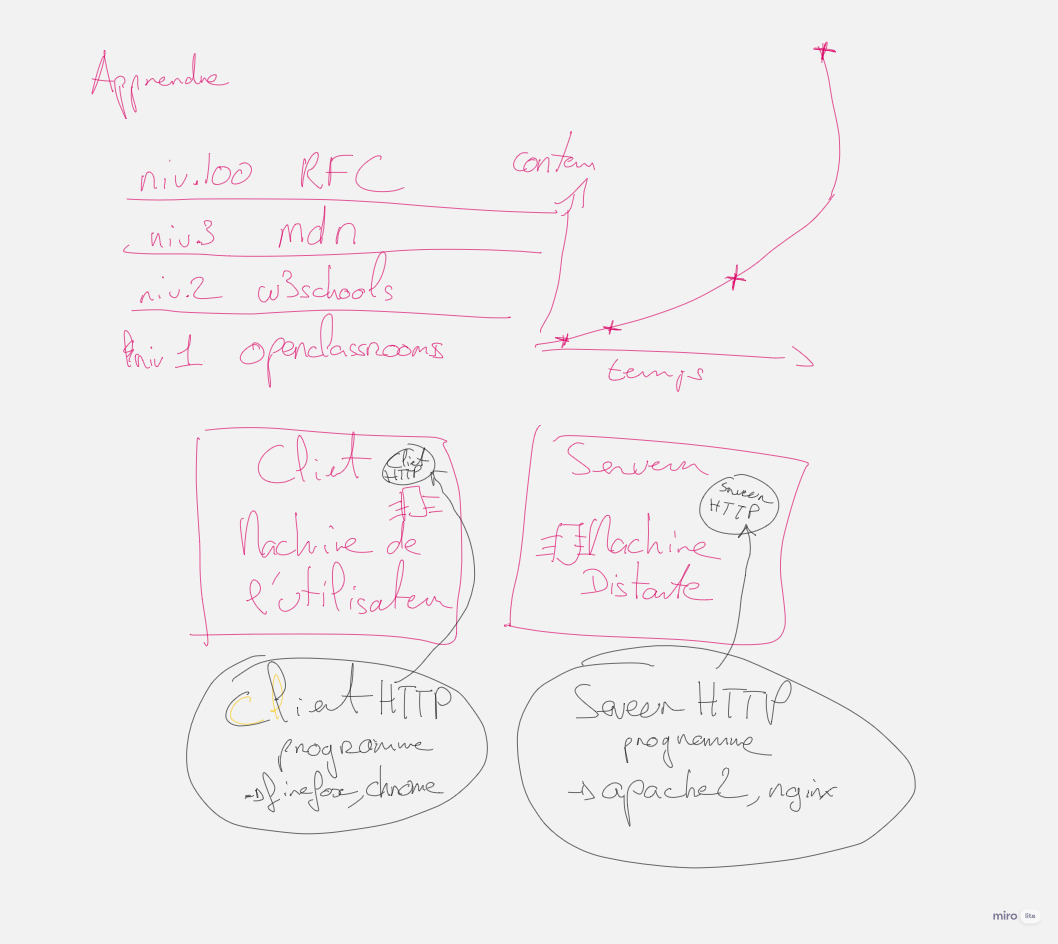 Apprendre
niv.100 RFC
niv.3 mdn
niv.2 w3schools
niv 1 openclassrooms
contenu
temps
Client
Client
HTTP
Machine de
l'utilisateur
Serveur
Serveur
HTTP
Machine
Distante
Client HTTP
programme
→ firefox, chrome
Serveur HTTP
programme
→ apache2, nginx
miro lite